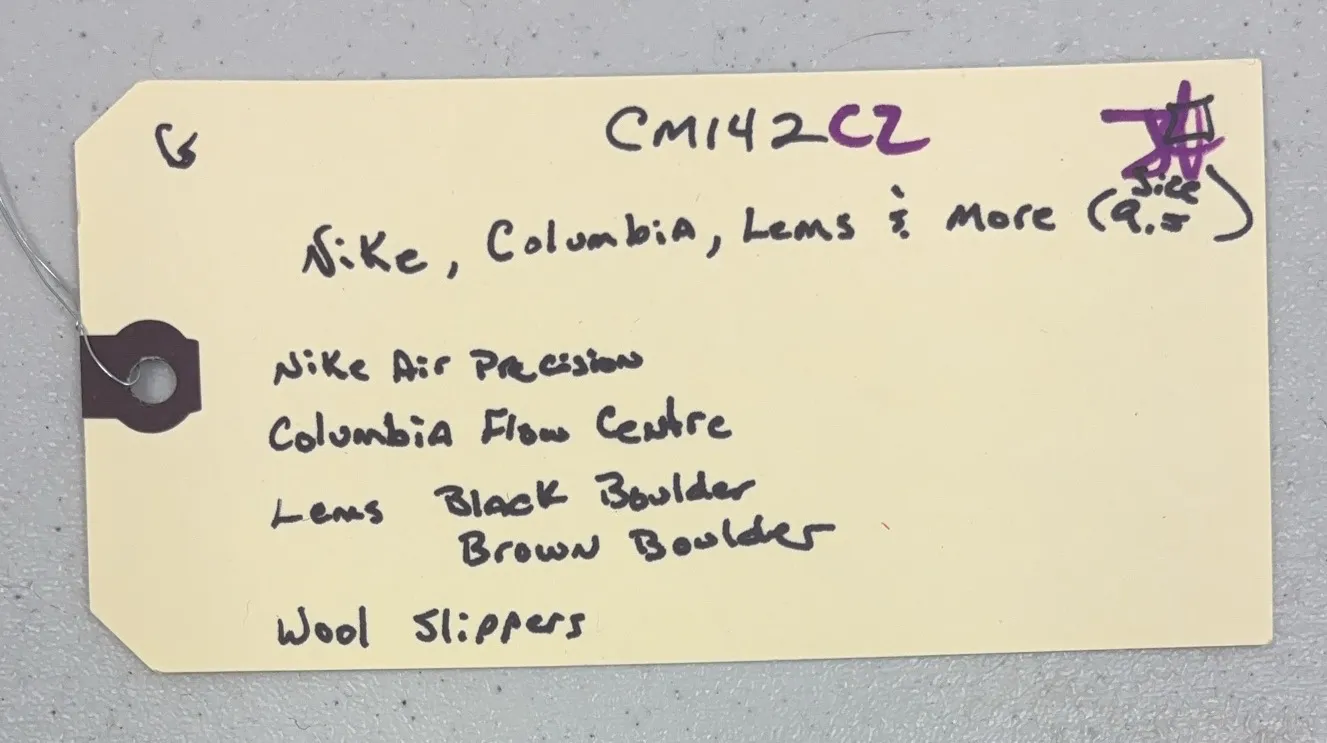 G
CM142CZ
Nike, Columbia, Lems & More (Size 9.5)
Nike Air Precision
Columbia Flow Centre
Lems Black Boulder
Brown Boulder
Wool Slippers